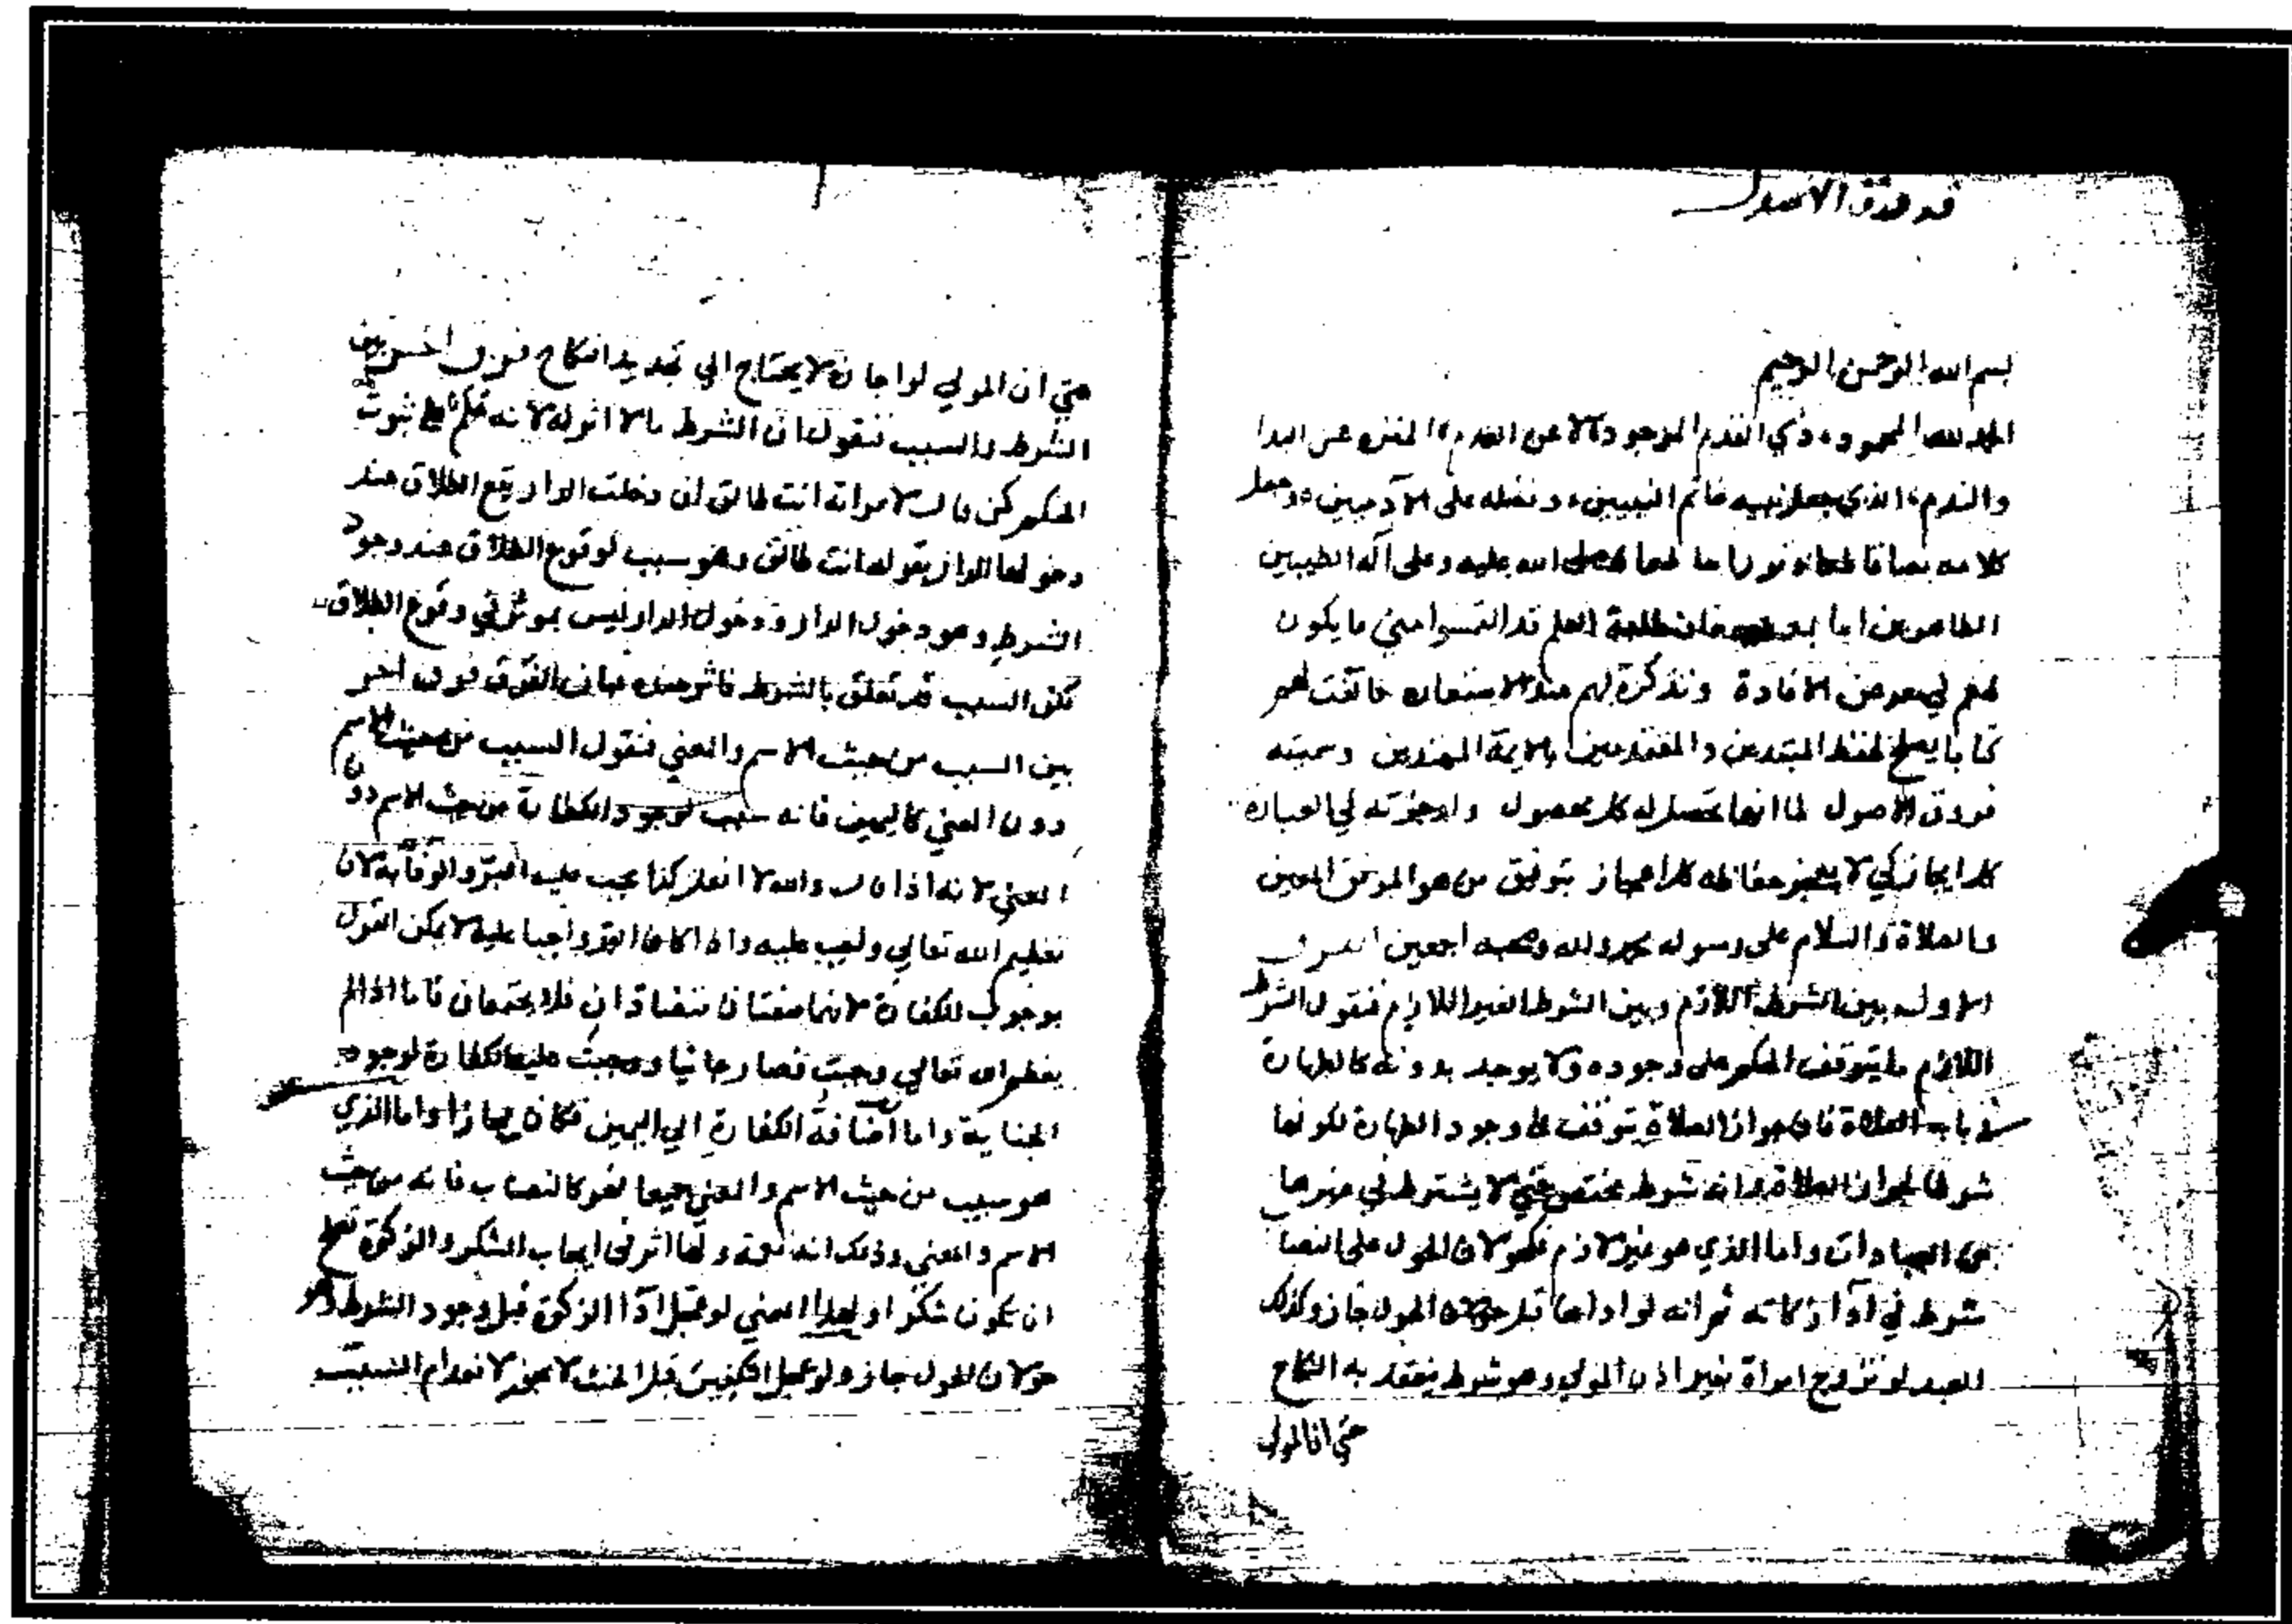 فروق الاصول
بسم الله الرحمن الرحيم
الحمد لله المحمود ذي القدم الموجود لا عن العدم المنزه عن البدا
والندم الذي جعل نبيه خاتم النبيين وفضله على الآدميين وجعل
كلامه الله عليه وعلى آله الطيبين
الطاهرين اما بعد فان طلبة العلم قد التمسوا مني ما يكون
لهم في معرض الافادة وتذكرة لهم عند الاستعاده فالفت لهم
كتابا يصلح لحفظ المبتدين والمقتدين بالايمة المهتدين وسميته
فروق الاصول لما انها تحصل له كل محصول واوجزته في العباره
كل ايجاز كي لا يعجز حفاظه كل اعجاز بتوفيق من هو الموفق المعين
والصلاة والسلام على رسوله محمد واله وصحبه اجمعين الفرق
الاول بين الشرط اللازم وبين الشرط الغير اللازم فنقول الشرط
اللازم ما يتوقف الحكم على وجوده ولا يوجد بدونه كالطهارة
في باب الصلاة فان جواز الصلاة يتوقف على وجود الطهارة لكونها
شرطا لجواز الصلاة وانه شرط مختص حتى لا يشترط في غيرها
من العبادات واما الذي هو غير لازم فكحولان الحول على النصاب
شرط في اداء زكاته ثم انه لو اداها قبل حولان الحول جاز وكذلك
العبد لو تزوج امراة بغير اذن المولى وهو شرط ينعقد به النكاح
حتى ان المولى
حتى ان المولى لو اجازه لا يحتاج الي تجديد النكاح فرق اخر بين
الشرط والسبب فنقول ان الشرط ما لا اثر له لانه علم على ثبوت
الحكم كمن قال لامراته انت طالق ان دخلت الدار يقع الطلاق عند
دخولها الدار بقوله انت طالق وهو سبب لوقوع الطلاق عند وجود
الشرط وهو دخول الدار ودخول الدار ليس بموثر في وقوع الطلاق
لكن السبب قد تعلق بالشرط فاثر عنده فبان الفرق فرق اخر
بين السبب من حيث الاسم والمعني فنقول السبب من حيث الاسم
دون المعني كاليمين فانه سبب لوجود الكفارة من حيث الاسم دون
المعني لانه اذا قال والله لا افعل كذا يجب عليه البر والوفا به لان
تعظيم الله تعالي واجب عليه واذا كان البر واجبا عليه لا يمكن القول
بوجوب الكفارة لانهما صفتان تتضادان فلا يجتمعان فاما اذا لم
يعظم الله تعالي وحنث فصار جانيا ووجبت عليه الكفارة لوجود
الجناية واما اضافة الكفارة الي اليمين فكان مجازا واما الذي
هو سبب من حيث الاسم والمعني جميعا فهو كالنصاب فانه من حيث
الاسم والمعني وذلك انه نعمة ولها اثر في ايجاب الشكر والزكوة تصلح
ان تكون شكرا ولهذا المعني لو عجل اداء الزكوة قبل وجود الشرط وهو
حولان الحول جاز ولو عجل التكفير قبل الحنث لا يجوز لانعدام السبب